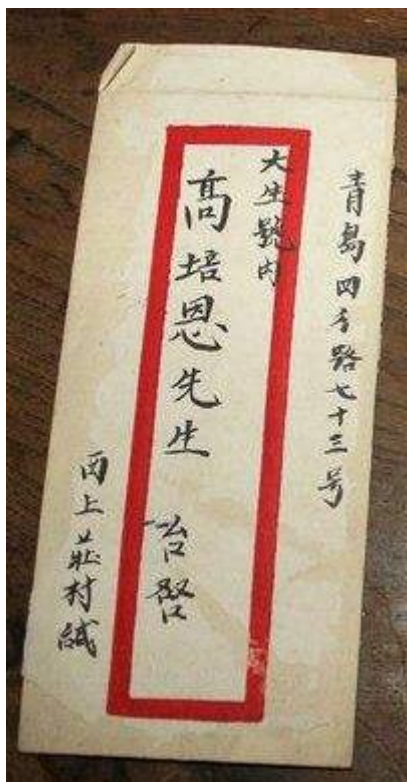 青島四方路七十三号
大生號内
高培恩先生 台啓
西上莊村緘